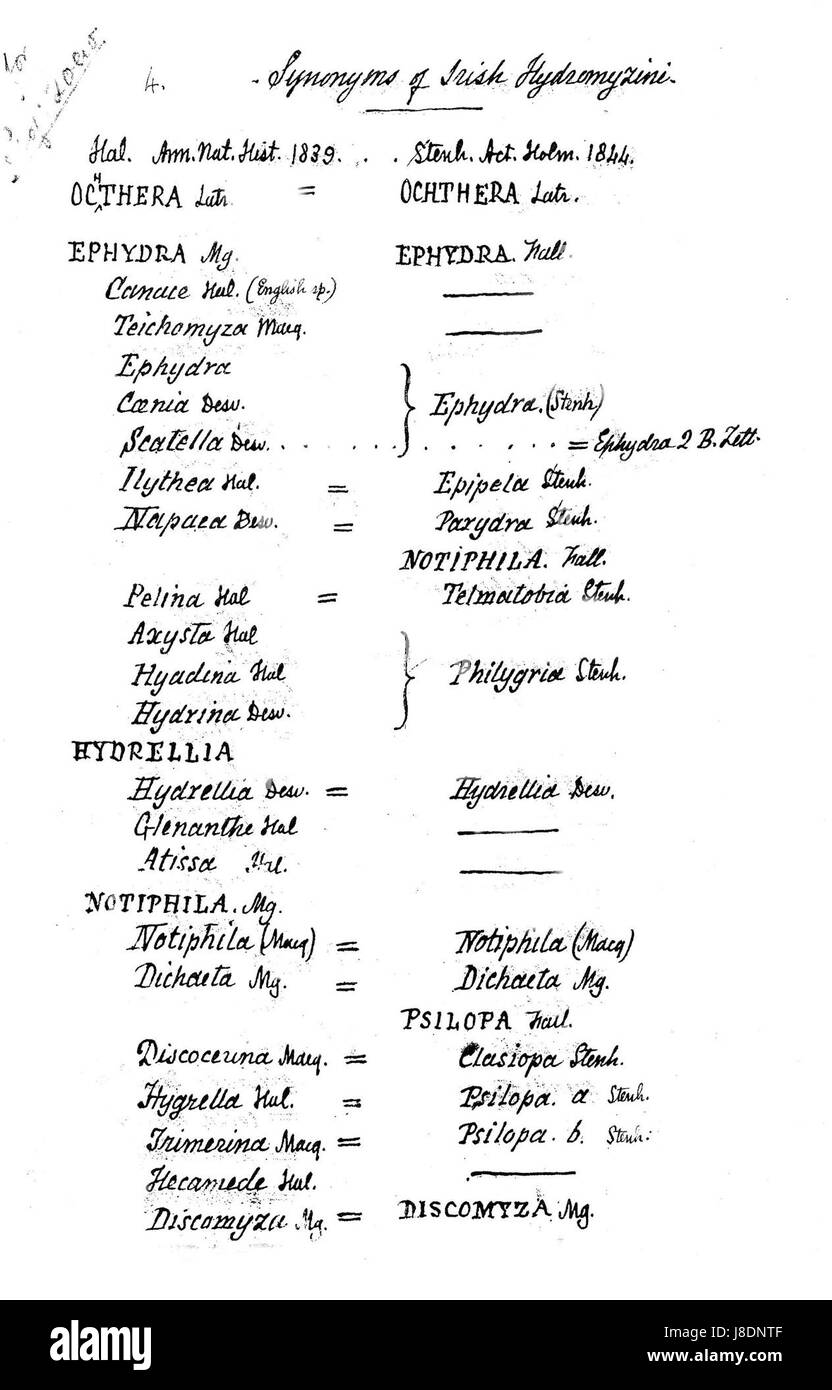 4. Synonyms of Irish Hydromyzini.
Hal. Ann. Nat. Hist. 1839. . . Stenh. Act. Holm. 1844.
OCHTHERA Latr. = OCHTHERA Latr.
EPHYDRA Mg. EPHYDRA. Fall.
Canace Hal. (English sp.) ——
Teichomyza Macq. ——
Ephydra
Cænia Desv. } Ephydra. (Stenh)
Scatella Desv. . . . . . . . . . . . . = Ephydra 2 B. Zett.
Ilythea Hal. = Epipela Stenh.
Napaea Desv. = Parydra Stenh.
NOTIPHILA. Fall.
Pelina Hal = Telmatobia Stenh.
Axysta Hal
Hyadina Hal } Philygria Stenh.
Hydrina Desv.
HYDRELLIA
Hydrellia Desv. = Hydrellia Desv.
Glenanthe Hal ——
Atissa Hal. ——
NOTIPHILA. Mg.
Notiphila (Macq) = Notiphila (Macq)
Dichaeta Mg. = Dichaeta Mg.
PSILOPA Fall.
Discocerina Macq. = Clasiopa Stenh.
Hygrella Hal. = Psilopa. a Stenh.
Trimerina Macq. = Psilopa. b. Stenh:
Hecamede Hal. ——
Discomyza Mg. = DISCOMYZA Mg.
alamy
Image ID: J8DNTF
www.alamy.com